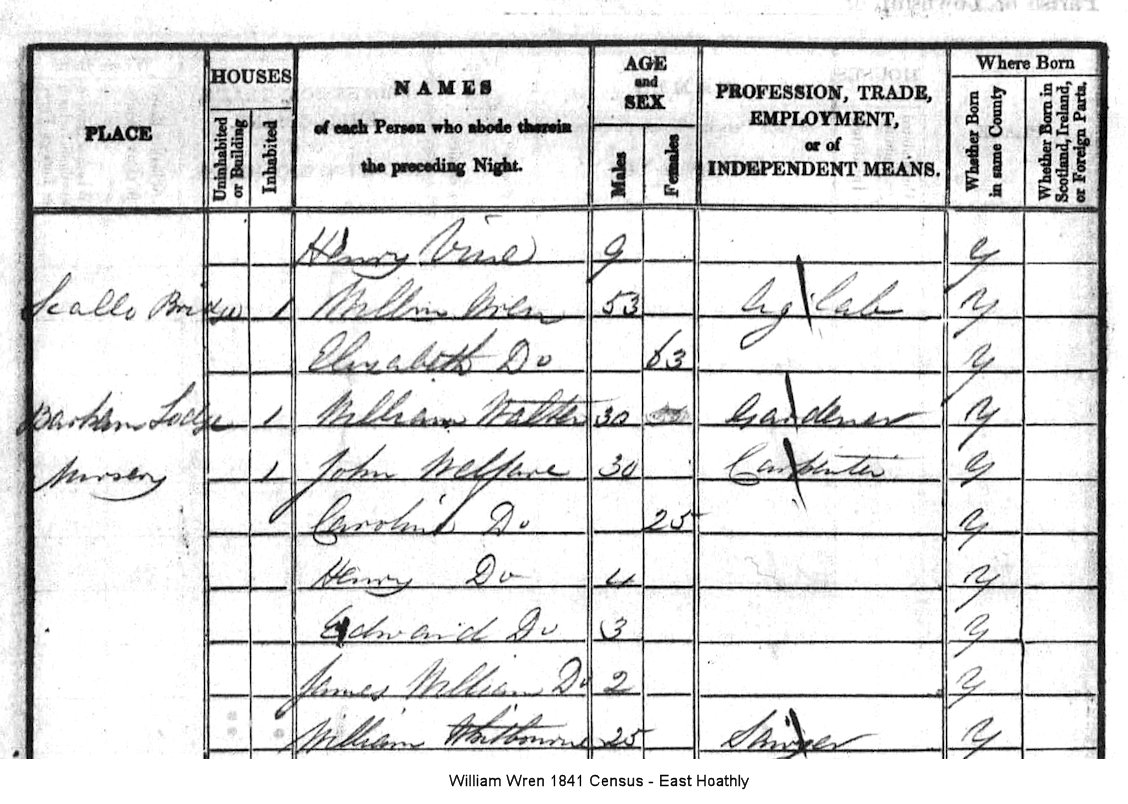 Parish or Township of
HOUSES
AGE and SEX
Where Born
PLACE
Uninhabited or Building
Inhabited
NAMES
of each Person who abode therein
the preceding Night.
Males
Females
PROFESSION, TRADE,
EMPLOYMENT,
or of
INDEPENDENT MEANS.
Whether Born in same County
Whether Born in Scotland, Ireland, or Foreign Parts.
Henry Vine 9 Y
Scallo Bridge 1 William Wren 53 Ag Lab Y
Elizabeth Do 63 Y
Barham Lodge 1 William Walter 30 Gardener Y
Nursery 1 John Welfare 30 Carpenter Y
Caroline Do 25 Y
Henry Do 4 Y
Edward Do 3 Y
James William Do 2 Y
William Whitbourne 25 Sawyer Y
William Wren 1841 Census - East Hoathly